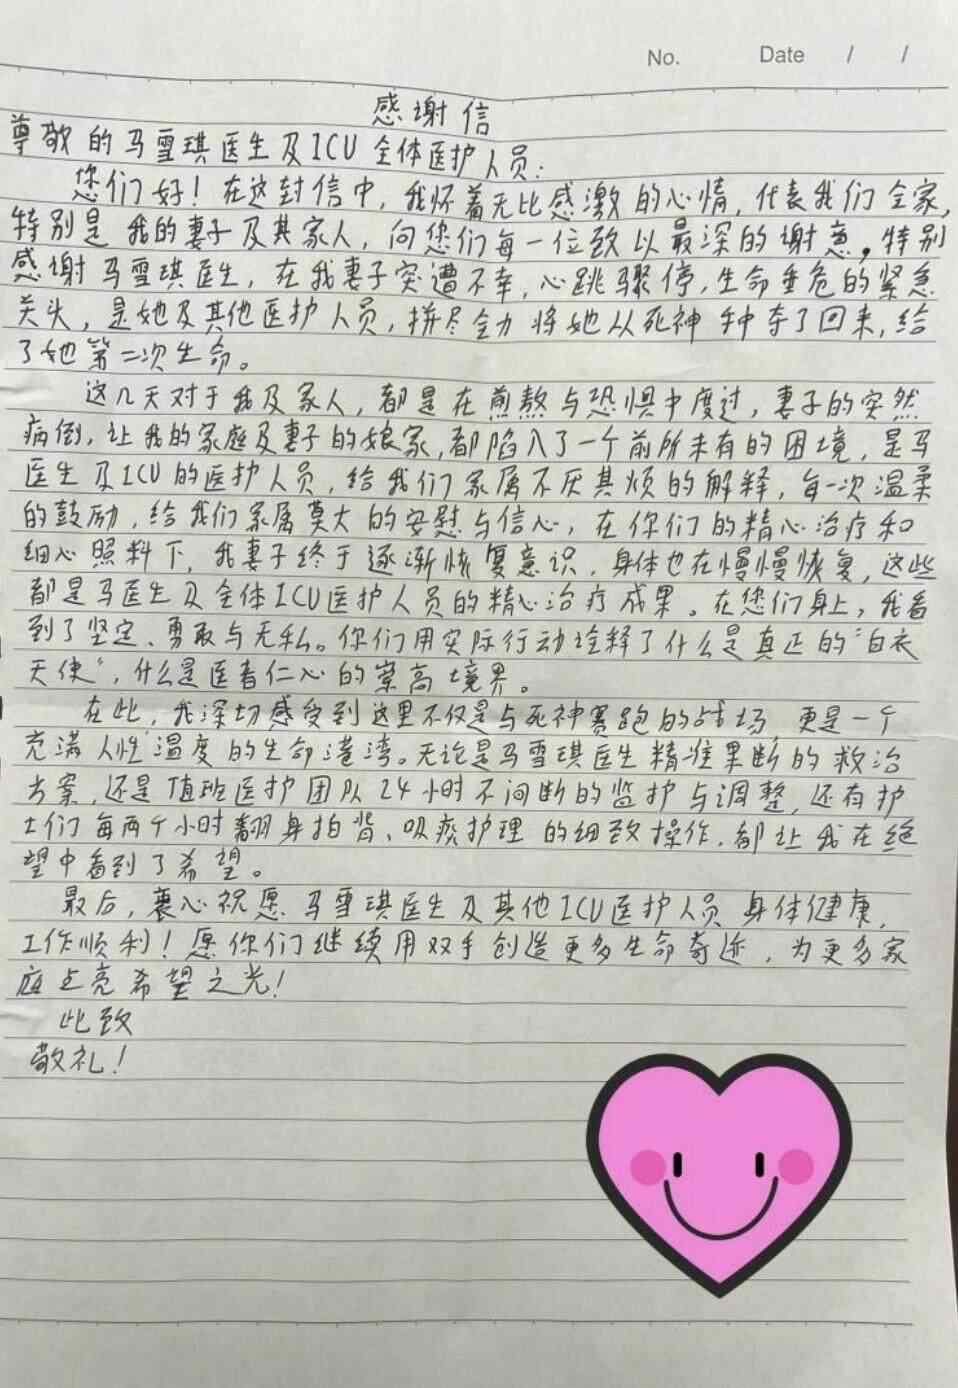 No. Date / /
感谢信
尊敬的马雪琪医生及ICU全体医护人员:
您们好！在这封信中，我怀着无比感激的心情，代表我们全家，
特别是我的妻子及其家人，向您们每一位致以最深的谢意。特别
感谢马雪琪医生，在我妻子突遭不幸，心跳骤停，生命垂危的紧急
关头，是她及其他医护人员，拼尽全力将她从死神手中夺了回来，给
了她第二次生命。
这几天对于我及家人，都是在煎熬与恐惧中度过，妻子的突然
病倒，让我的家庭及妻子的娘家，都陷入了一个前所未有的困境，是马
医生及ICU的医护人员，给我们家属不厌其烦的解释，每一次温柔
的鼓励，给我们家属莫大的安慰与信心，在你们的精心治疗和
细心照料下，我妻子终于逐渐恢复意识，身体也在慢慢恢复，这些
都是马医生及全体ICU医护人员的精心治疗成果。在您们身上，我看
到了坚定、勇敢与无私。你们用实际行动诠释了什么是真正的“白衣
天使”，什么是医者仁心的崇高境界。
在此，我深切感受到这里不仅是与死神赛跑的战场，更是一个
充满人性温度的生命港湾。无论是马雪琪医生精准果断的救治
方案，还是值班医护团队24小时不间断的监护与调整，还有护
士们每两个小时翻身拍背、吸痰护理的细致操作，都让我在绝
望中看到了希望。
最后，衷心祝愿马雪琪医生及其他ICU医护人员身体健康，
工作顺利！愿你们继续用双手创造更多生命奇迹，为更多家
庭点亮希望之光！
此致
敬礼！